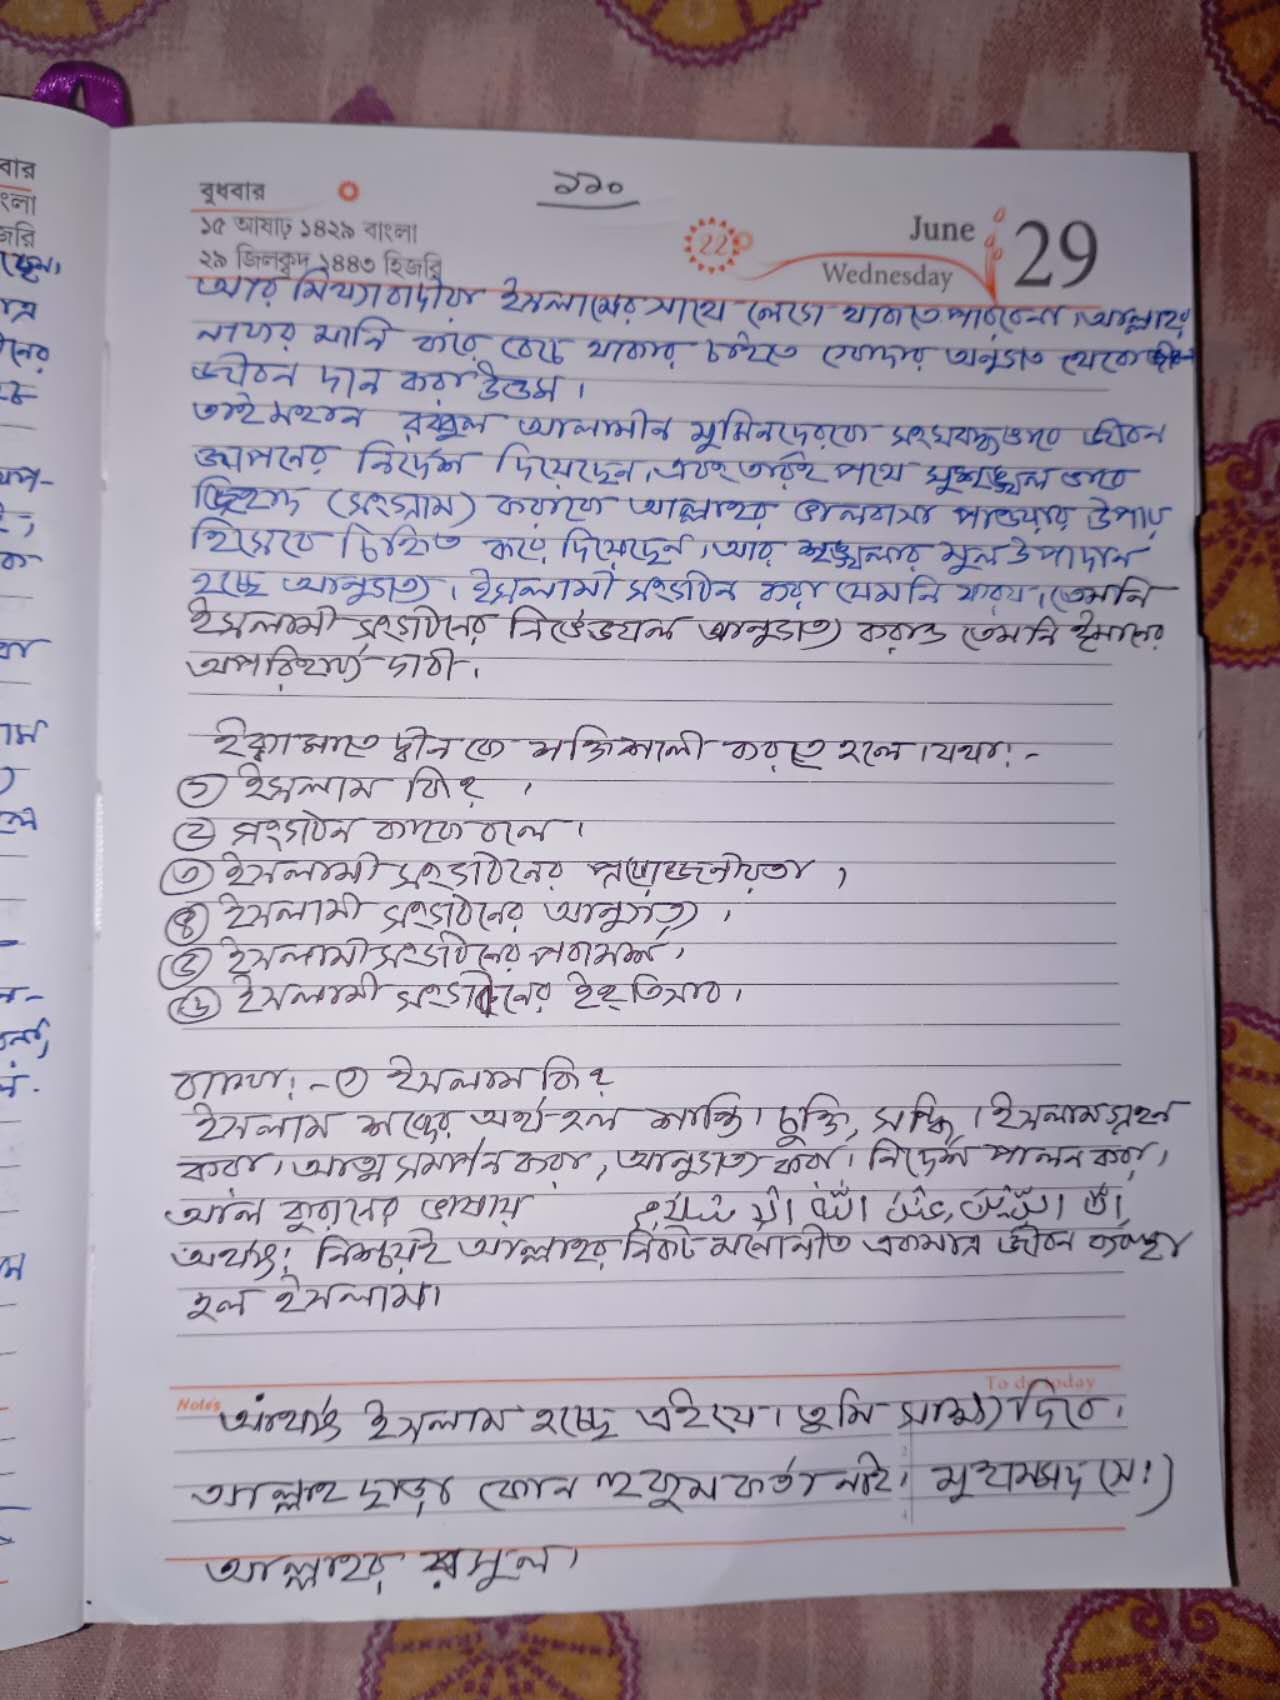 ১১০
বুধবার
১৫ আষাঢ় ১৪২৯ বাংলা
২৯ জিলক্বদ ১৪৪৩ হিজরি
22
June 29
Wednesday
আর মিথ্যাবাদীরা ইসলামের সাথে লেগে থাকতে পারবেনা। আল্লাহর
নাফর মানি করে বেচে থাকার চাইতে খোদার অনুগত থেকে
জীবন দান করা উত্তম।
তাই মহান রব্বুল আলামীন মুমিনদেরকে সংঘবদ্ধভাবে জীবন
জাপনের নির্দেশ দিয়েছেন, এবং তারই পথে সুশৃঙ্খল ভাবে
জিহাদ (সংগ্রাম) করাকে আল্লাহর ভালবাসা পাওয়ার উপায়
হিসেবে চিহ্নিত করে দিয়েছেন, আর শৃঙ্খলার মূল উপাদান
হচ্ছে আনুগত্য। ইসলামী সংগঠন করা যেমনি ফরয, তেমনি
ইসলামী সংগঠনের আনুগত্য করাও তেমনি ইমানের
অপরিহার্য দাবী।
ইক্বামাতে দ্বীন কে শক্তিশালী করতে হলে। যথা:-
১ ইসলাম কি?
২ সংগঠন কাকে বলে।
৩ ইসলামী সংগঠনের প্রয়োজনীয়তা,
৪ ইসলামী সংগঠনের আনুগত্য,
৫ ইসলামী সংগঠনের পরামর্শ,
৬ ইসলামী সংগঠনের ইহ্তিসাব।
ব্যাখ্যা:- ১ ইসলাম কি?
ইসলাম শব্দের অর্থ হল শান্তি। চুক্তি, সন্ধি। ইসলাম গ্রহন
করা, আত্ম সমার্পন করা, আনুগত্য করা। নির্দেশ পালন করা,
আল কুরানের ভাষায়
অর্থাৎ: নিশ্চয়ই আল্লাহর নিকট মনোনীত একমাত্র জীবন ব্যবস্থা
হল ইসলাম।
Notes
To do today
অর্থাৎ ইসলাম হচ্ছে এই যে। তুমি সাক্ষ্য দিবে।
আল্লাহ ছাড়া কোন হুকুম কর্তা নাই। মুহাম্মাদ (স:)
আল্লাহর রাসুল।